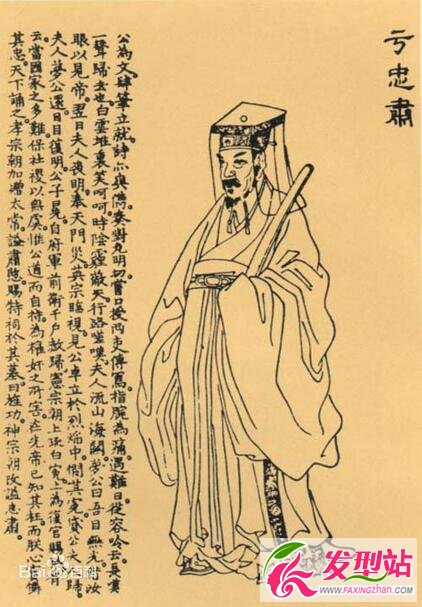 亏忠肅
公為文肆筆立就。詩亦與隱。奏對尤明切。嘗口授兩吏傳寫。指腕為痛。遇難日從容吟云。長嘆
一聲歸去也。白雲堆裏笑呵呵。時陰霾蔽天。行路嗟嘆。夫人流山海關。夢公曰。吾目無光。汝
眼以見帝。翌日夫人喪明。奉天門災。英宗臨視。見公卓立於烈焰中。憫其冤。貸公夫人歸。
夫人夢公還目。目復明。公子冕自府軍前衛千戶放歸。憲宗朝上疏白冤。上為復官賜祭。有
云。當國家之多難。保社稷以無虞。惟公道而自持。為權奸之所害。在先帝已知其枉。而朕心
其忠。天下誦之。孝宗朝加贈太常。諡肅愍。賜特祠於其墓曰旌功。神宗朝改諡忠肅。
Bai 百科
发型站
www.FAXINGZHAN.com